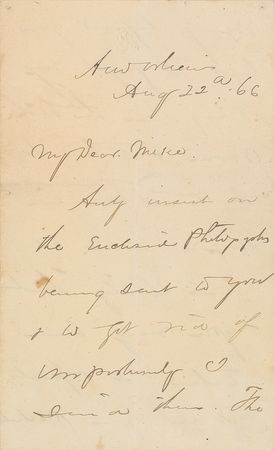 New Orleans
Aug 22ᵈ 66
My Dear Mike.
insist on
the Enclosed Photographs
being sent to you
& to get rid of
importunity I
send them. The